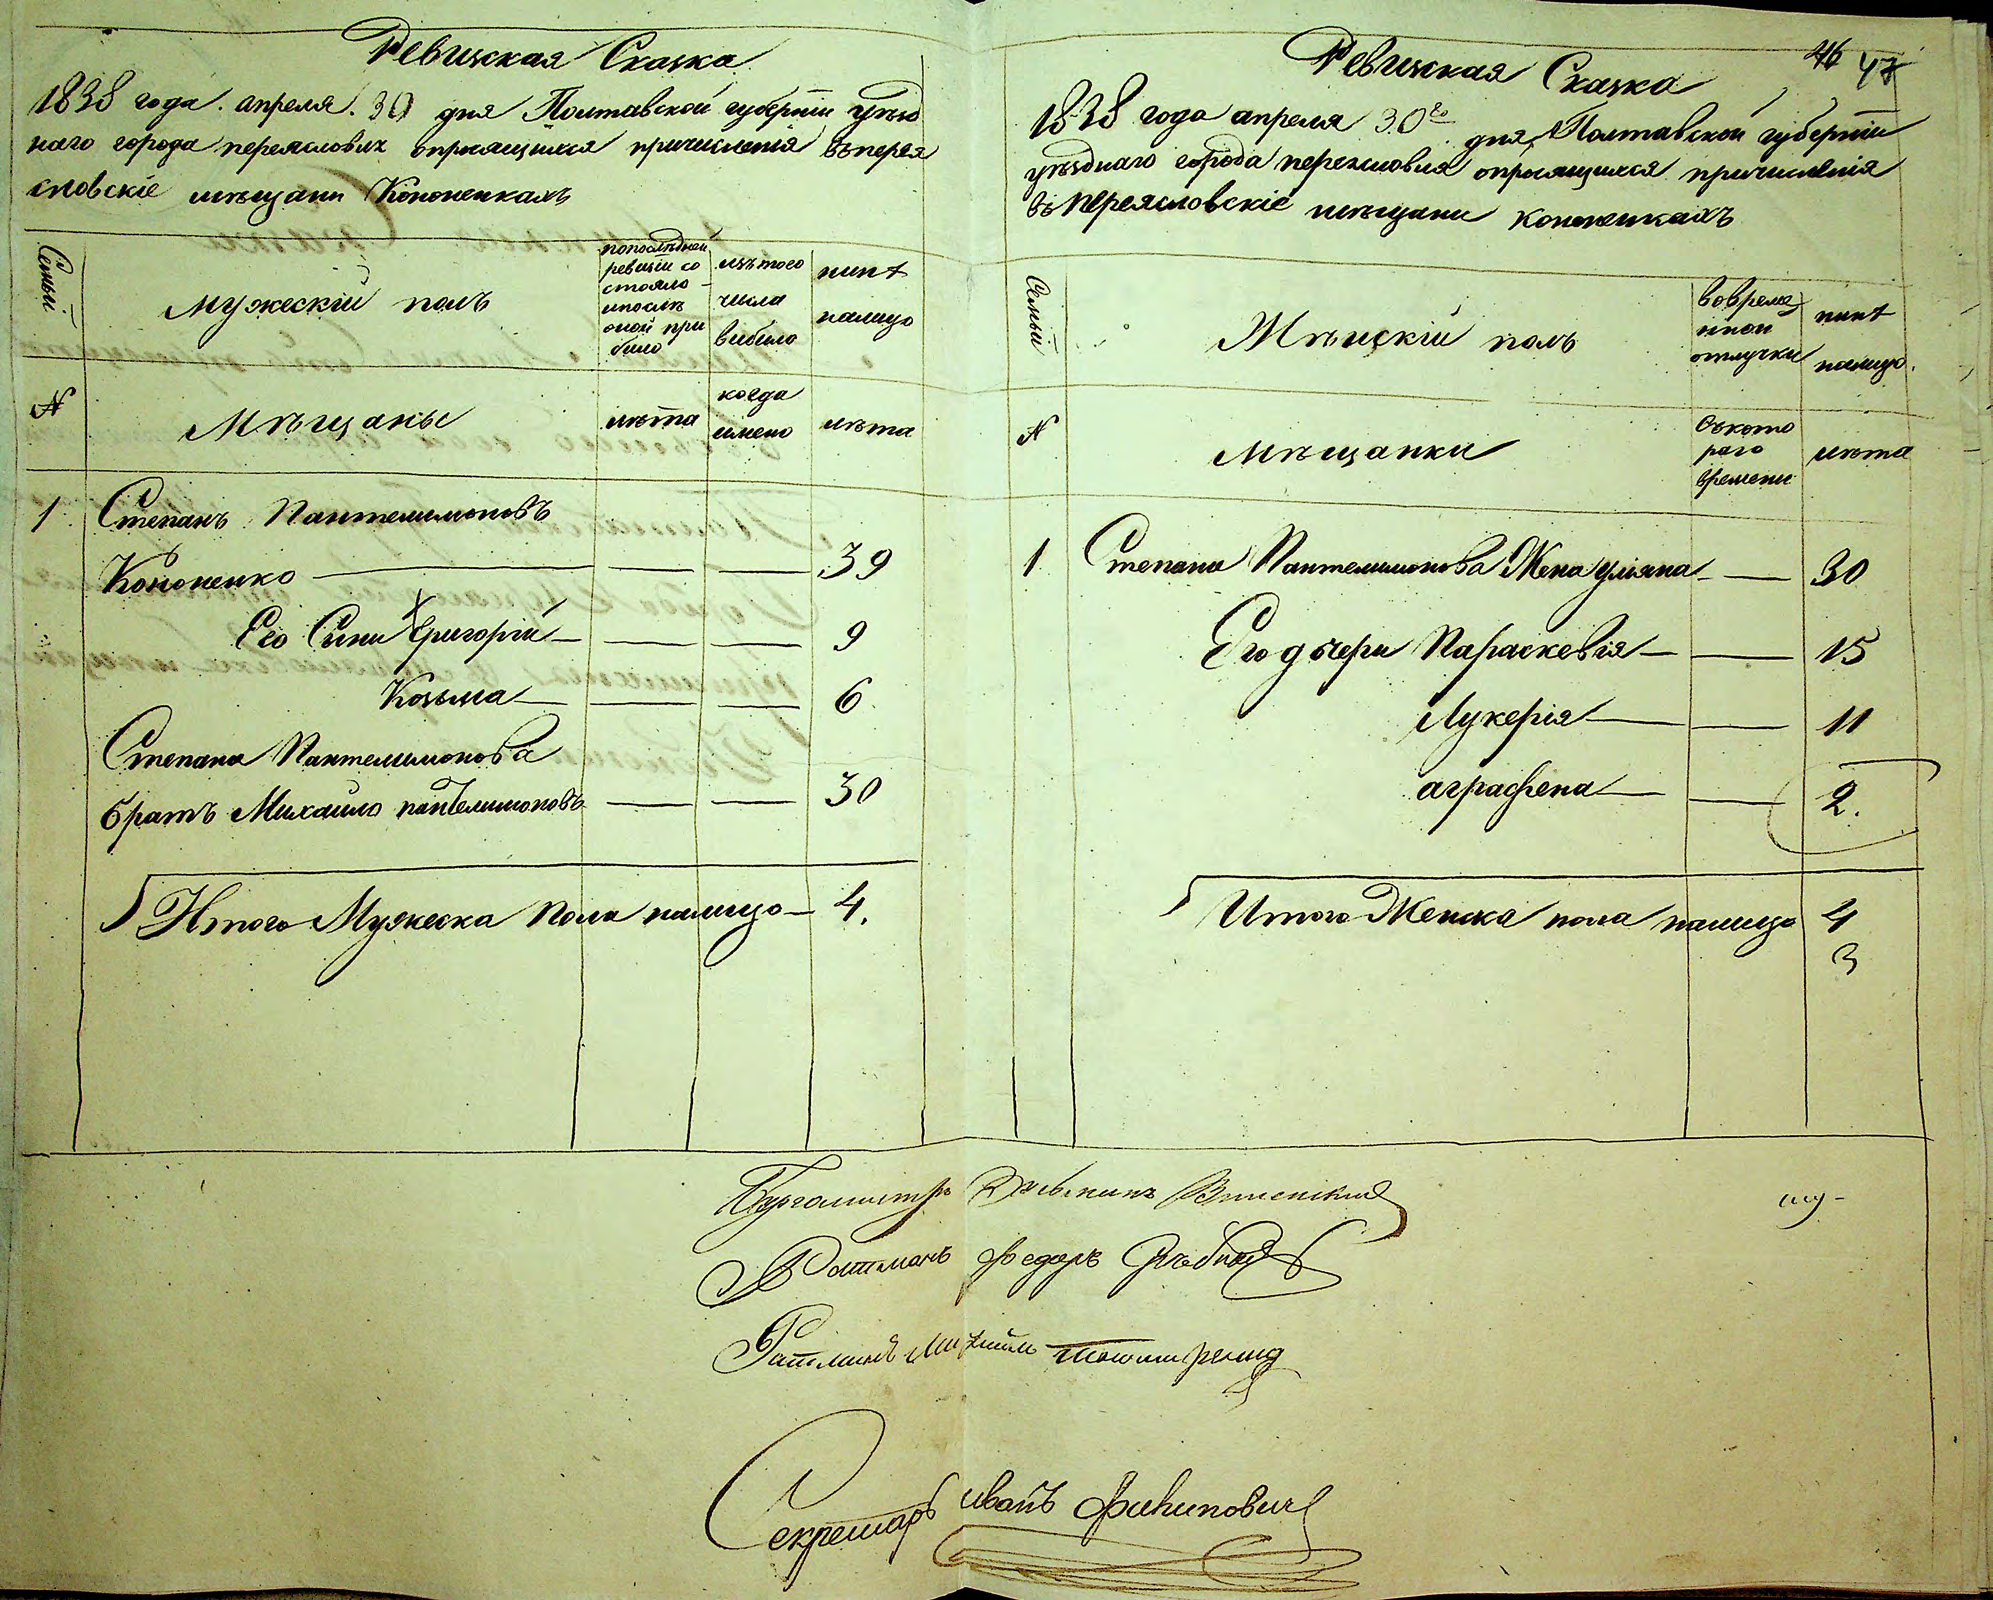 Ревизская Сказка
1838 года апреля 30 дня Полтавской губернїи уѣзд
наго города переяславля опросящихся причисленія въ перея
словскіе мѣщани Кононенкахъ
Семьи
Мужескій полъ
попослѣдней
ревизіи со
стояло
ипослѣ
оной при
било
изътого
числа
вибило
нинѣ
налицо
№
Мѣщаны
лѣта
когда
имено
лѣта
1 Степанъ Пантелимоновъ
Кононенко 39
Его Сини Григорій 9
Козьма 6
Степана Пантелимонова
братъ Михаило пантелимоновъ 30
Итого Мужеска Пола налицо 4.
46 47
Ревизская Сказка
1838 года апреля 30го дня Полтавской губернїи
уѣзднаго города переяславля опросящихся причисленія
въ переясловскіе мѣщани кононенкахъ
Семьи
Женскій полъ
вовреме
нной
отлучки
нинѣ
налицо.
№
Мѣщанки
съкото
раго
времени
лѣта
1 Степана Пантелимонова Жена уліяна 30
Его дочери Параскевія 15
Лукерія 11
аграфена 2.
Итого Женска пола налицо 4
3
Бургомистръ
Ратманъ Федоръ
Ратманъ Михаилъ
Секретарь иванъ Филиповичъ